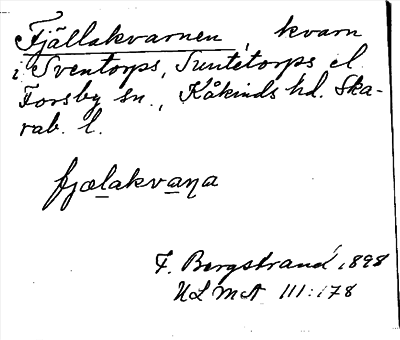 Fjällakvarnen, kvarn
i Sventorps, Suntetorps el.
Forsby sn., Kåkinds hd. Ska-
rab. l.
fjælakvaṉa
F. Bergstrand, 1898
ULMA 111:178